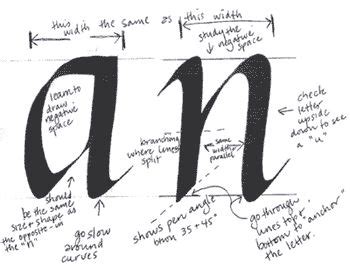 this width the same as this width
study the
negative
space
learn to
draw
negative
space
an
check
letter
upside
down to see
a "u"
branching
where lines
split
same
width
parallel
should
be the same
size + shape as
the opposite - in
the "n"
go slow
around
curves
shows pen angle
btwn 35 + 45°
go through
lines top +
bottom to "anchor"
the letter.